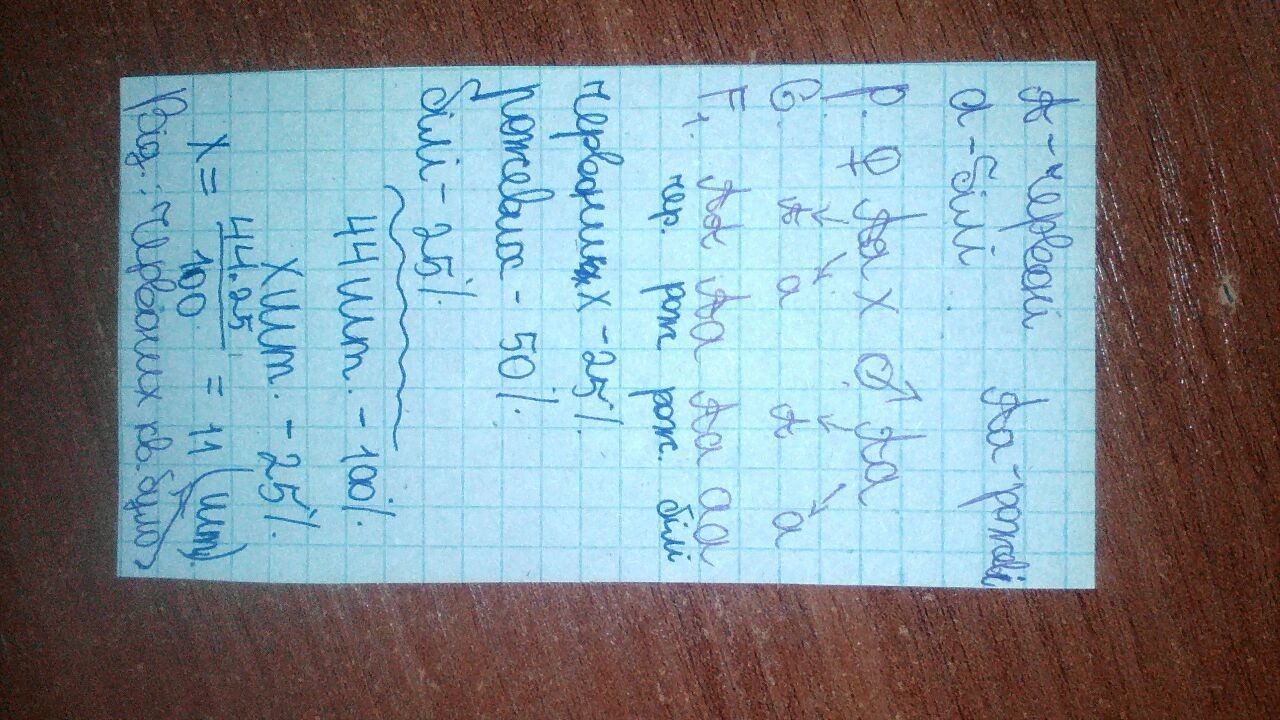 А - червоні Аа - рожеві
а - білі
Р. ♀ Аа х ♂ Аа
G. А а А а
F₁. АА Аа Аа аа
чер. рож рож. білі
червоних - 25%.
рожевих - 50%.
білі - 25%.
44 шт. - 100%.
Х шт. - 25%.
Х = 44.25 / 100 = 11 (шт)
Від.: червоних кв. було